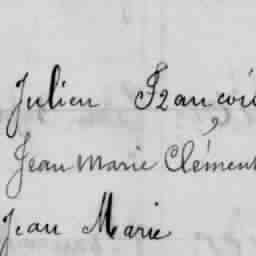 Julien Francois
Jean Marie Clément
Jean Marie